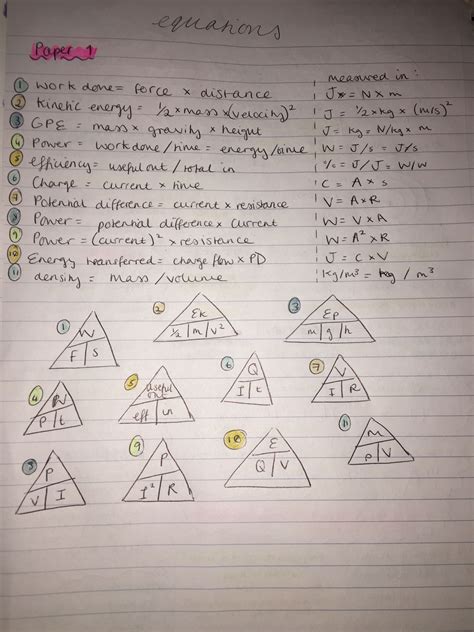 equations
Paper 1
measured in :
① work done = force × distance J = N × m
② Kinetic energy = 1/2 × mass × (velocity)² J = 1/2 × kg × (m/s)²
③ GPE = mass × gravity × height J = kg = N/kg × m
④ Power = work done / time = energy/time W = J/s = J/s
⑤ efficiency = useful out / total in % = J/J = W/W
⑥ Charge = current × time C = A × s
⑦ Potential difference = current × resistance V = A × R
⑧ Power = potential difference × current W = V × A
⑨ Power = (current)² × resistance W = A² × R
⑩ Energy transferred = charge flow × PD J = C × V
⑪ density = mass / volume kg/m³ = kg / m³
① W
F S
② Ek
1/2 m v²
③ Ep
m g h
④
P t
⑤ useful out
eff in
⑥ Q
I t
⑦ V
I R
⑧ P
V I
⑨ P
I² R
⑩ E
Q V
⑪ M
ρ V